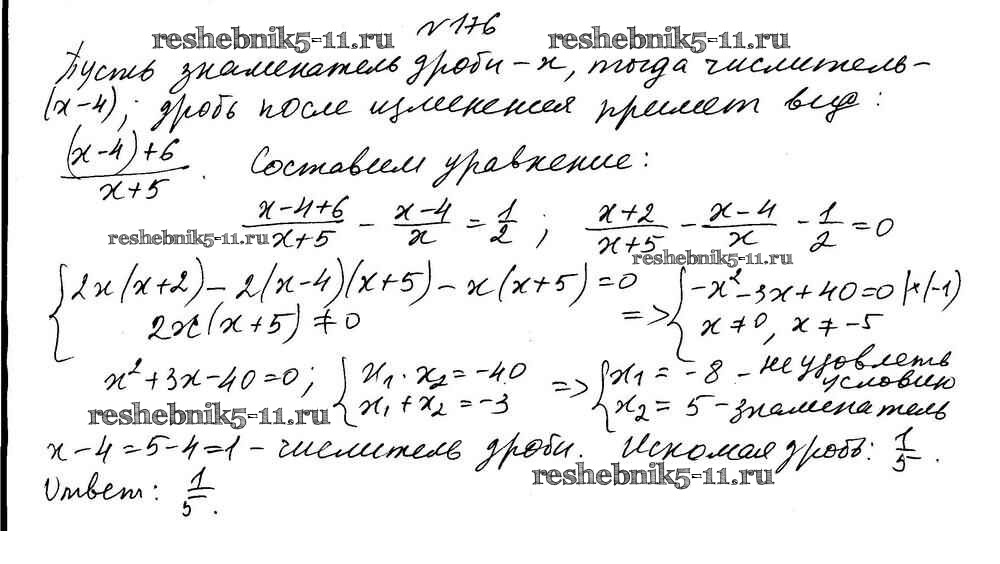 №176
reshebnik5-11.ru reshebnik5-11.ru
Пусть знаменатель дроби - x, тогда числитель -
(x-4); дробь после изменения примет вид:
(x-4)+6 / x+5 . Составим уравнение:
x-4+6 / x+5 - x-4 / x = 1/2 ; x+2 / x+5 - x-4 / x - 1/2 = 0
reshebnik5-11.ru reshebnik5-11.ru
{ 2x(x+2) - 2(x-4)(x+5) - x(x+5) = 0 => { -x² - 3x + 40 = 0 |×(-1)
2x(x+5) ≠ 0 x ≠ 0, x ≠ -5
x² + 3x - 40 = 0; { x₁ · x₂ = -40 => { x₁ = -8 - не удовлетв условию
x₁ + x₂ = -3 x₂ = 5 - знаменатель
reshebnik5-11.ru
x - 4 = 5 - 4 = 1 - числитель дроби. Искомая дробь: 1/5 .
reshebnik5-11.ru
Ответ: 1/5 .